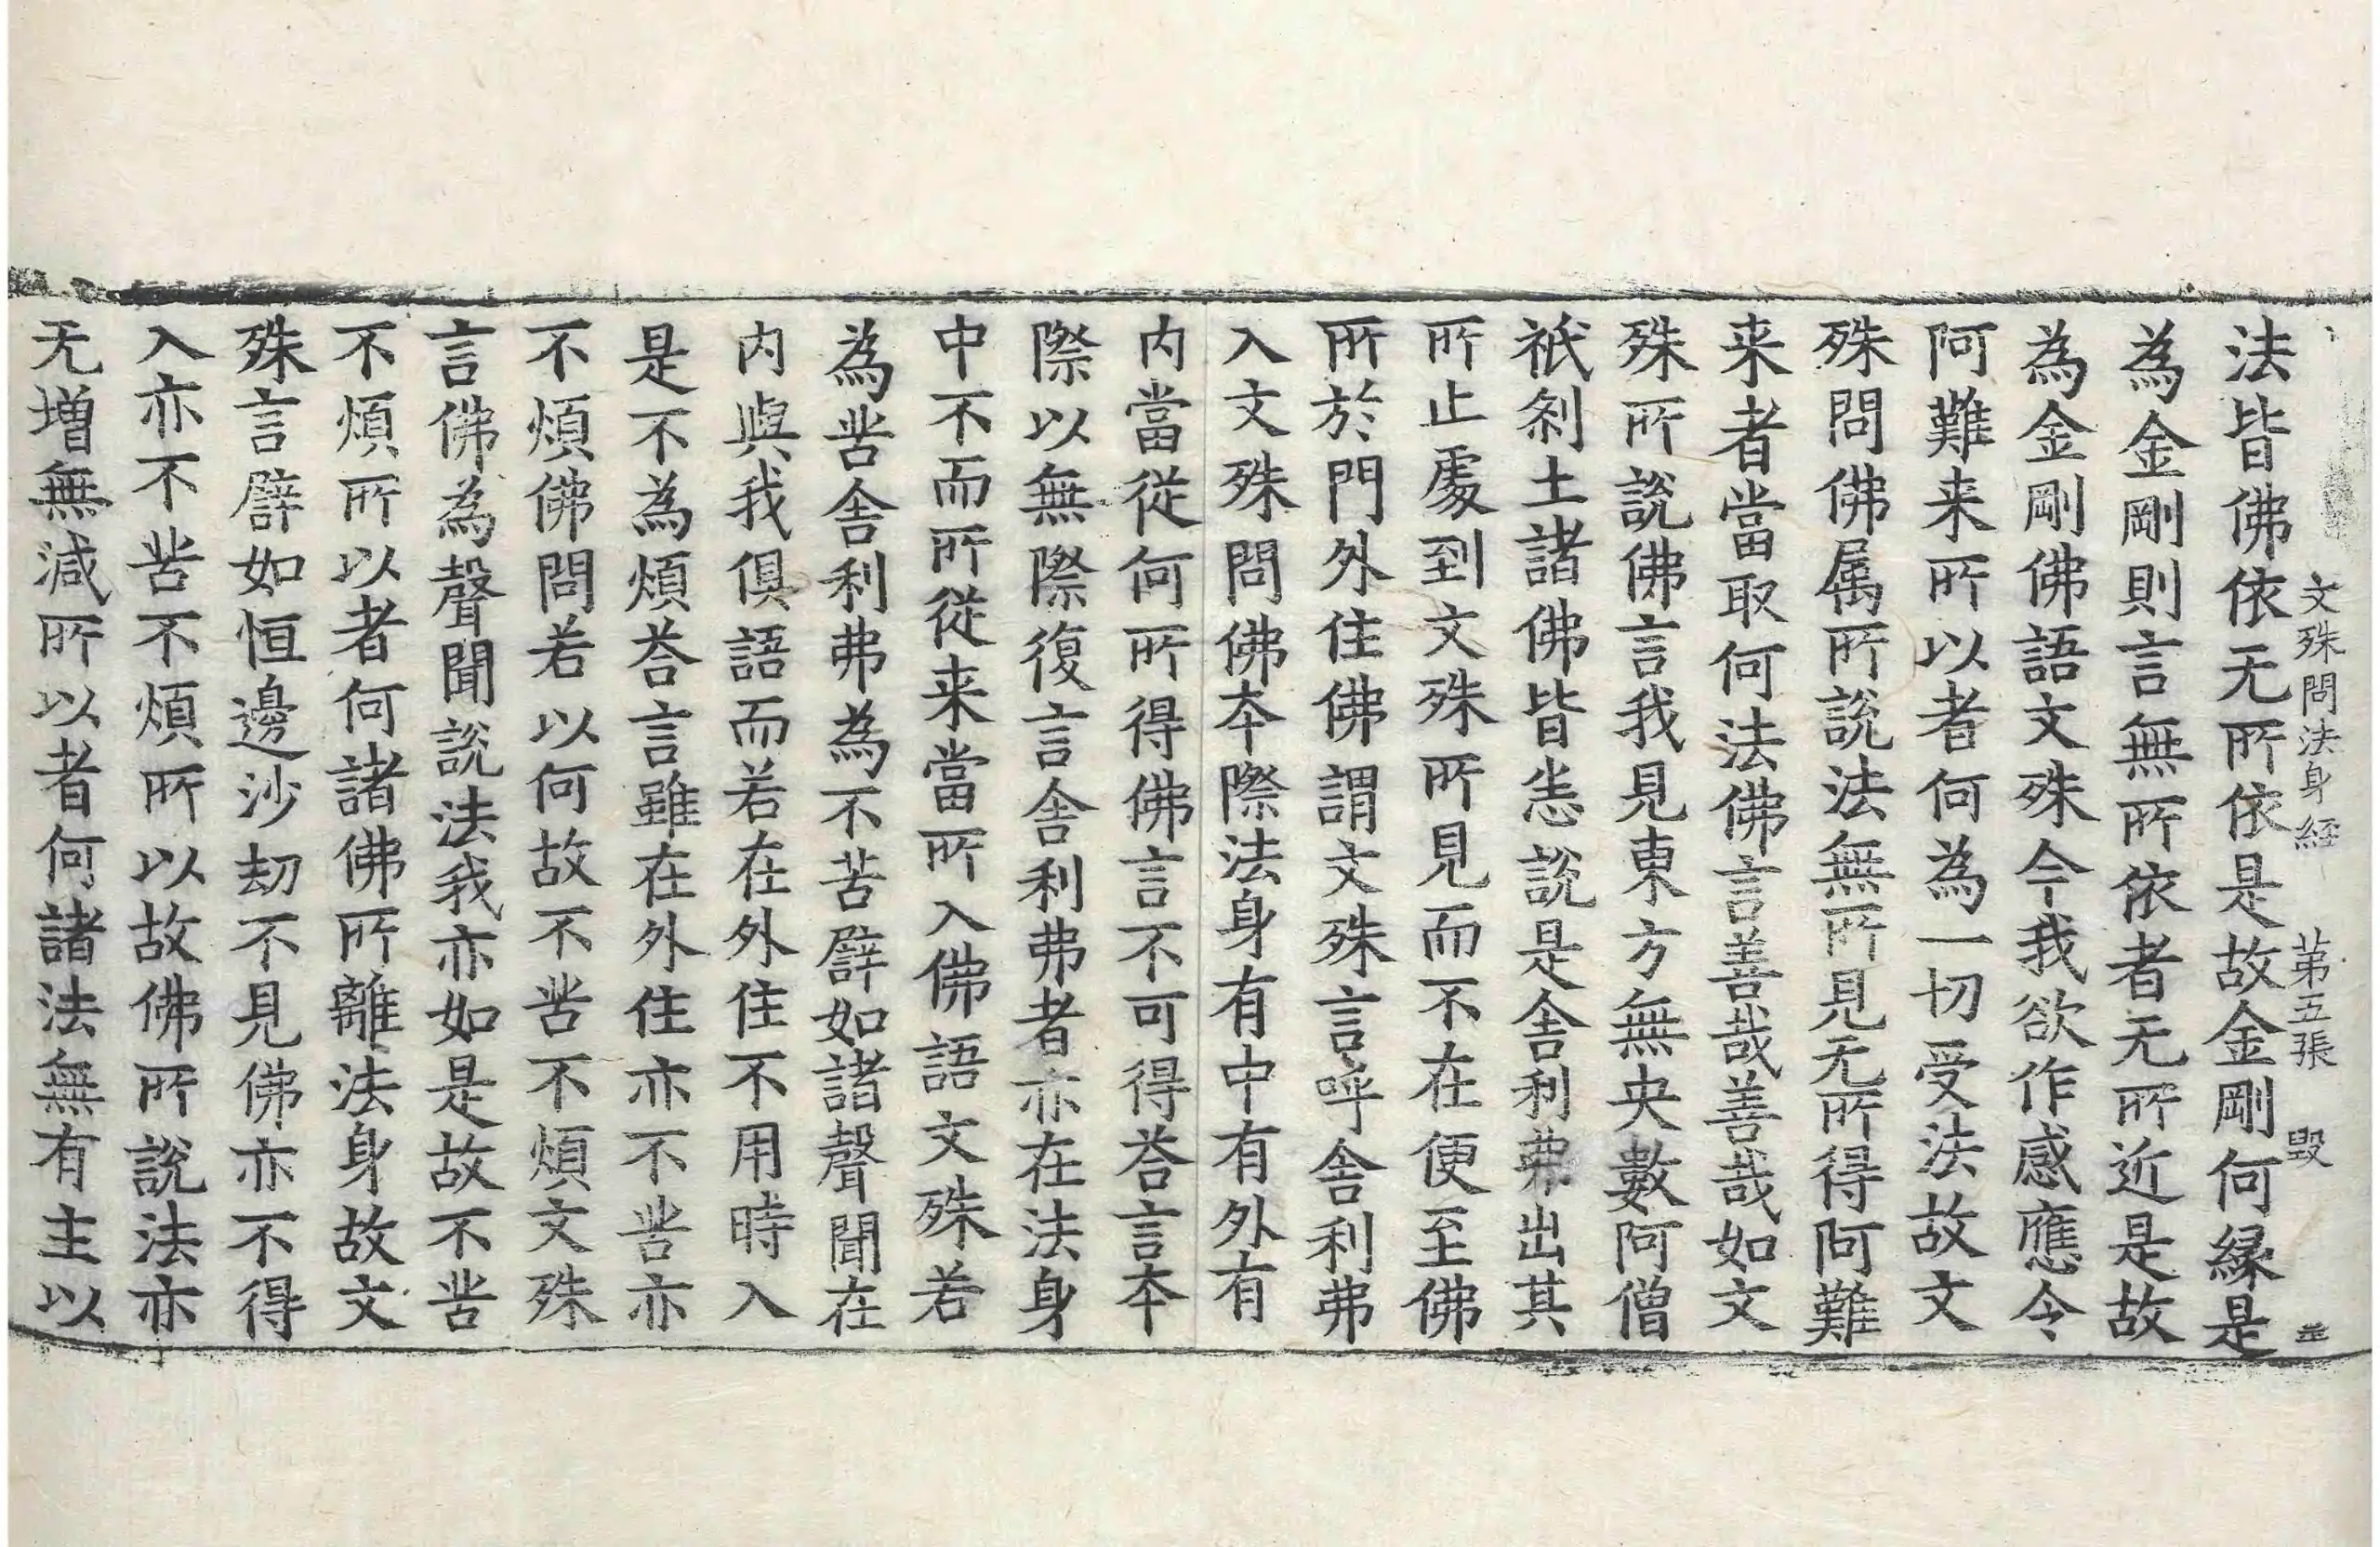 文殊問法身經 第五張 毀
法皆佛依无所依是故金剛何縁是
為金剛則言無所依者无所近是故
為金剛佛語文殊今我欲作感應令
阿難来所以者何為一切受法故文
殊問佛属所說法無所見无所得阿難
来者當取何法佛言善哉善哉如文
殊所說佛言我見東方無央數阿僧
祇剎土諸佛皆恙說是舍利弗出其
所止處到文殊所見而不在便至佛
所於門外住佛謂文殊言呼舍利弗
入文殊問佛本際法身有中有外有
内當從何所得佛言不可得荅言本
際以無際復言舍利弗者亦在法身
中不而所從来當所入佛語文殊若
為苦舍利弗為不苦譬如諸聲聞在
内與我俱語而若在外住不用時入
是不為煩荅言雖在外住亦不苦亦
不煩佛問若以何故不苦不煩文殊
言佛為聲聞說法我亦如是故不苦
不煩所以者何諸佛所離法身故文
殊言譬如恒邊沙劫不見佛亦不得
入亦不苦不煩所以故佛所說法亦
无增無減所以者何諸法無有主以